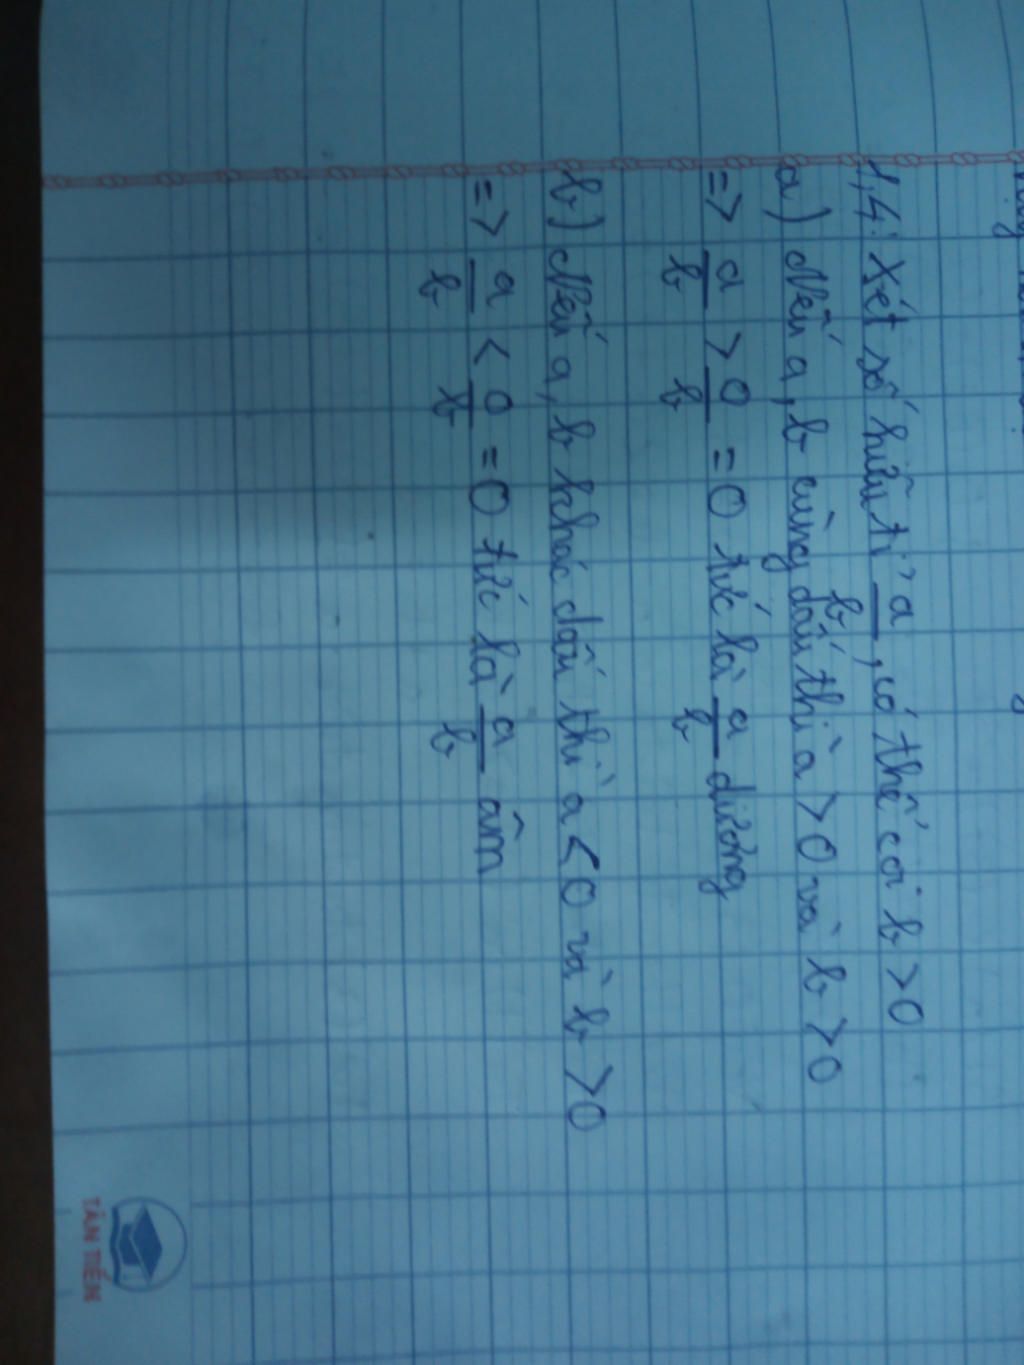 1,4: Xét số hữu tỉ a/b, có thể coi b > 0
a) Nếu a, b cùng dấu thì a > 0 và b > 0
=> a/b > 0/b = 0 tức là a/b dương
b) Nếu a, b khác dấu thì a < 0 và b > 0
=> a/b < 0/b = 0 tức là a/b âm
TÂN TIẾN